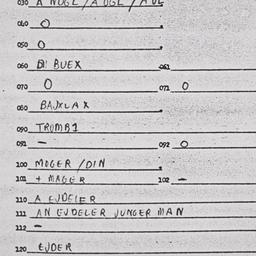 030 A NOGL / A OGL / A OL
040 O
050 O
060 DI BUEX 061
070 O 071 O
080 BAJXLAX
090 TRUMB1
091 – 092 O
100 MOGER / DIN
101 + MAGER 102 –
110 A EJDELER
111 AN EJDELER JUNGER MAN
112 –
120 EJDER